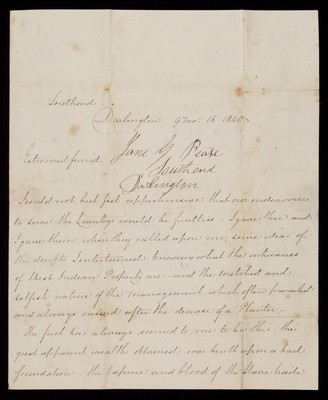 Southend
Darlington 9 mo: 16 1840
Esteemed friend
Jane G Pease
Southend
Darlington
I could not but feel apprehensive that our endeavours
to serve the Country would be fruitless. I gave thee and
I gave them when they called upon me, some idea of
the doubts I entertained knowing what the
of West Indian Property are and the wretched and
selfish nature of the management, which often prevailed
and always ensued after the decease of a Planter.
The fact has always seemed to me to be this the
great apparent wealth obtained was built upon a bad
foundation - the Expense and blood of the Slave trade